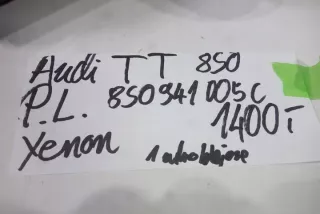 Audi TT 8S0
P.L. 8S0941005C
1400T
Xenon